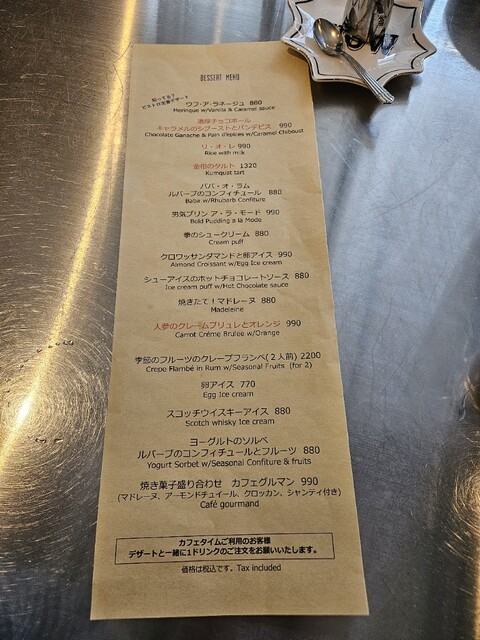 DESSERT MENU
知ってる?
ビストロ定番デザート
ウフ・ア・ラネージュ 880
Meringue w/Vanilla & Caramel sauce
濃厚チョコボール
キャラメルのシブーストとパンデピス 990
Chocolate Ganache & Pain d'epices w/Caramel Chiboust
リ・オ・レ 990
Rice with milk
金柑のタルト 1320
Kumquat tart
ババ・オ・ラム
ルバーブのコンフィチュール 880
Baba w/Rhubarb Confiture
男気プリン ア・ラ・モード 990
Bold Pudding a la Mode
拳のシュークリーム 880
Cream puff
クロワッサンダマンドと卵アイス 990
Almond Croissant w/Egg Ice cream
シューアイスのホットチョコレートソース 880
Ice cream puff w/Hot Chocolate sauce
焼きたて!マドレーヌ 880
Madeleine
人参のクレームブリュレとオレンジ 990
Carrot Créme Brulee w/Orange
季節のフルーツのクレープフランベ(2人前) 2200
Crepe Flambé in Rum w/Seasonal Fruits (for 2)
卵アイス 770
Egg Ice cream
スコッチウイスキーアイス 880
Scotch whisky Ice cream
ヨーグルトのソルベ
ルバーブのコンフィチュールとフルーツ 880
Yogurt Sorbet w/Seasonal Confiture & fruits
焼き菓子盛り合わせ カフェグルマン 990
(マドレーヌ、アーモンドチュイール、クロッカン、シャンティ付き)
Café gourmand
カフェタイムご利用のお客様
デザートと一緒に1ドリンクのご注文をお願いいたします。
価格は税込です。Tax included